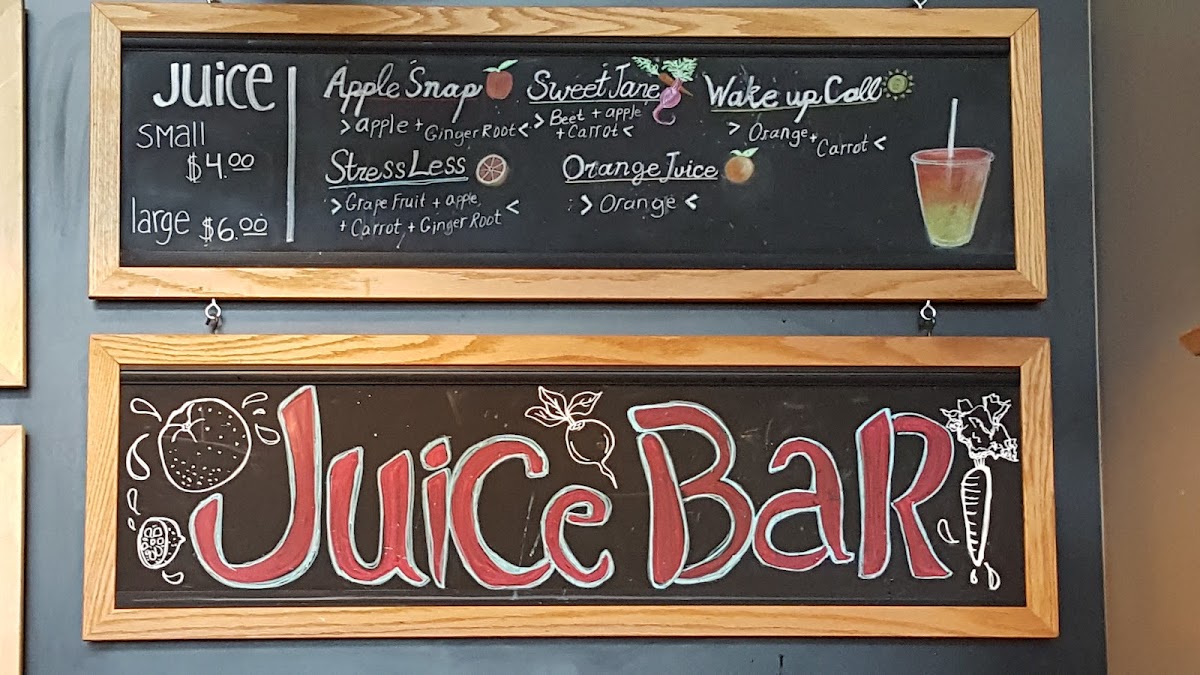 Juice
small
$4.00
large $6.00
Apple Snap
>apple + Ginger Root<
Sweet Jane
> Beet + apple
+ Carrot <
Wake up Call
> Orange +
Carrot <
Stress Less
> Grape Fruit + apple, <
+ Carrot + Ginger Root
Orange Juice
> Orange <
Juice Bar